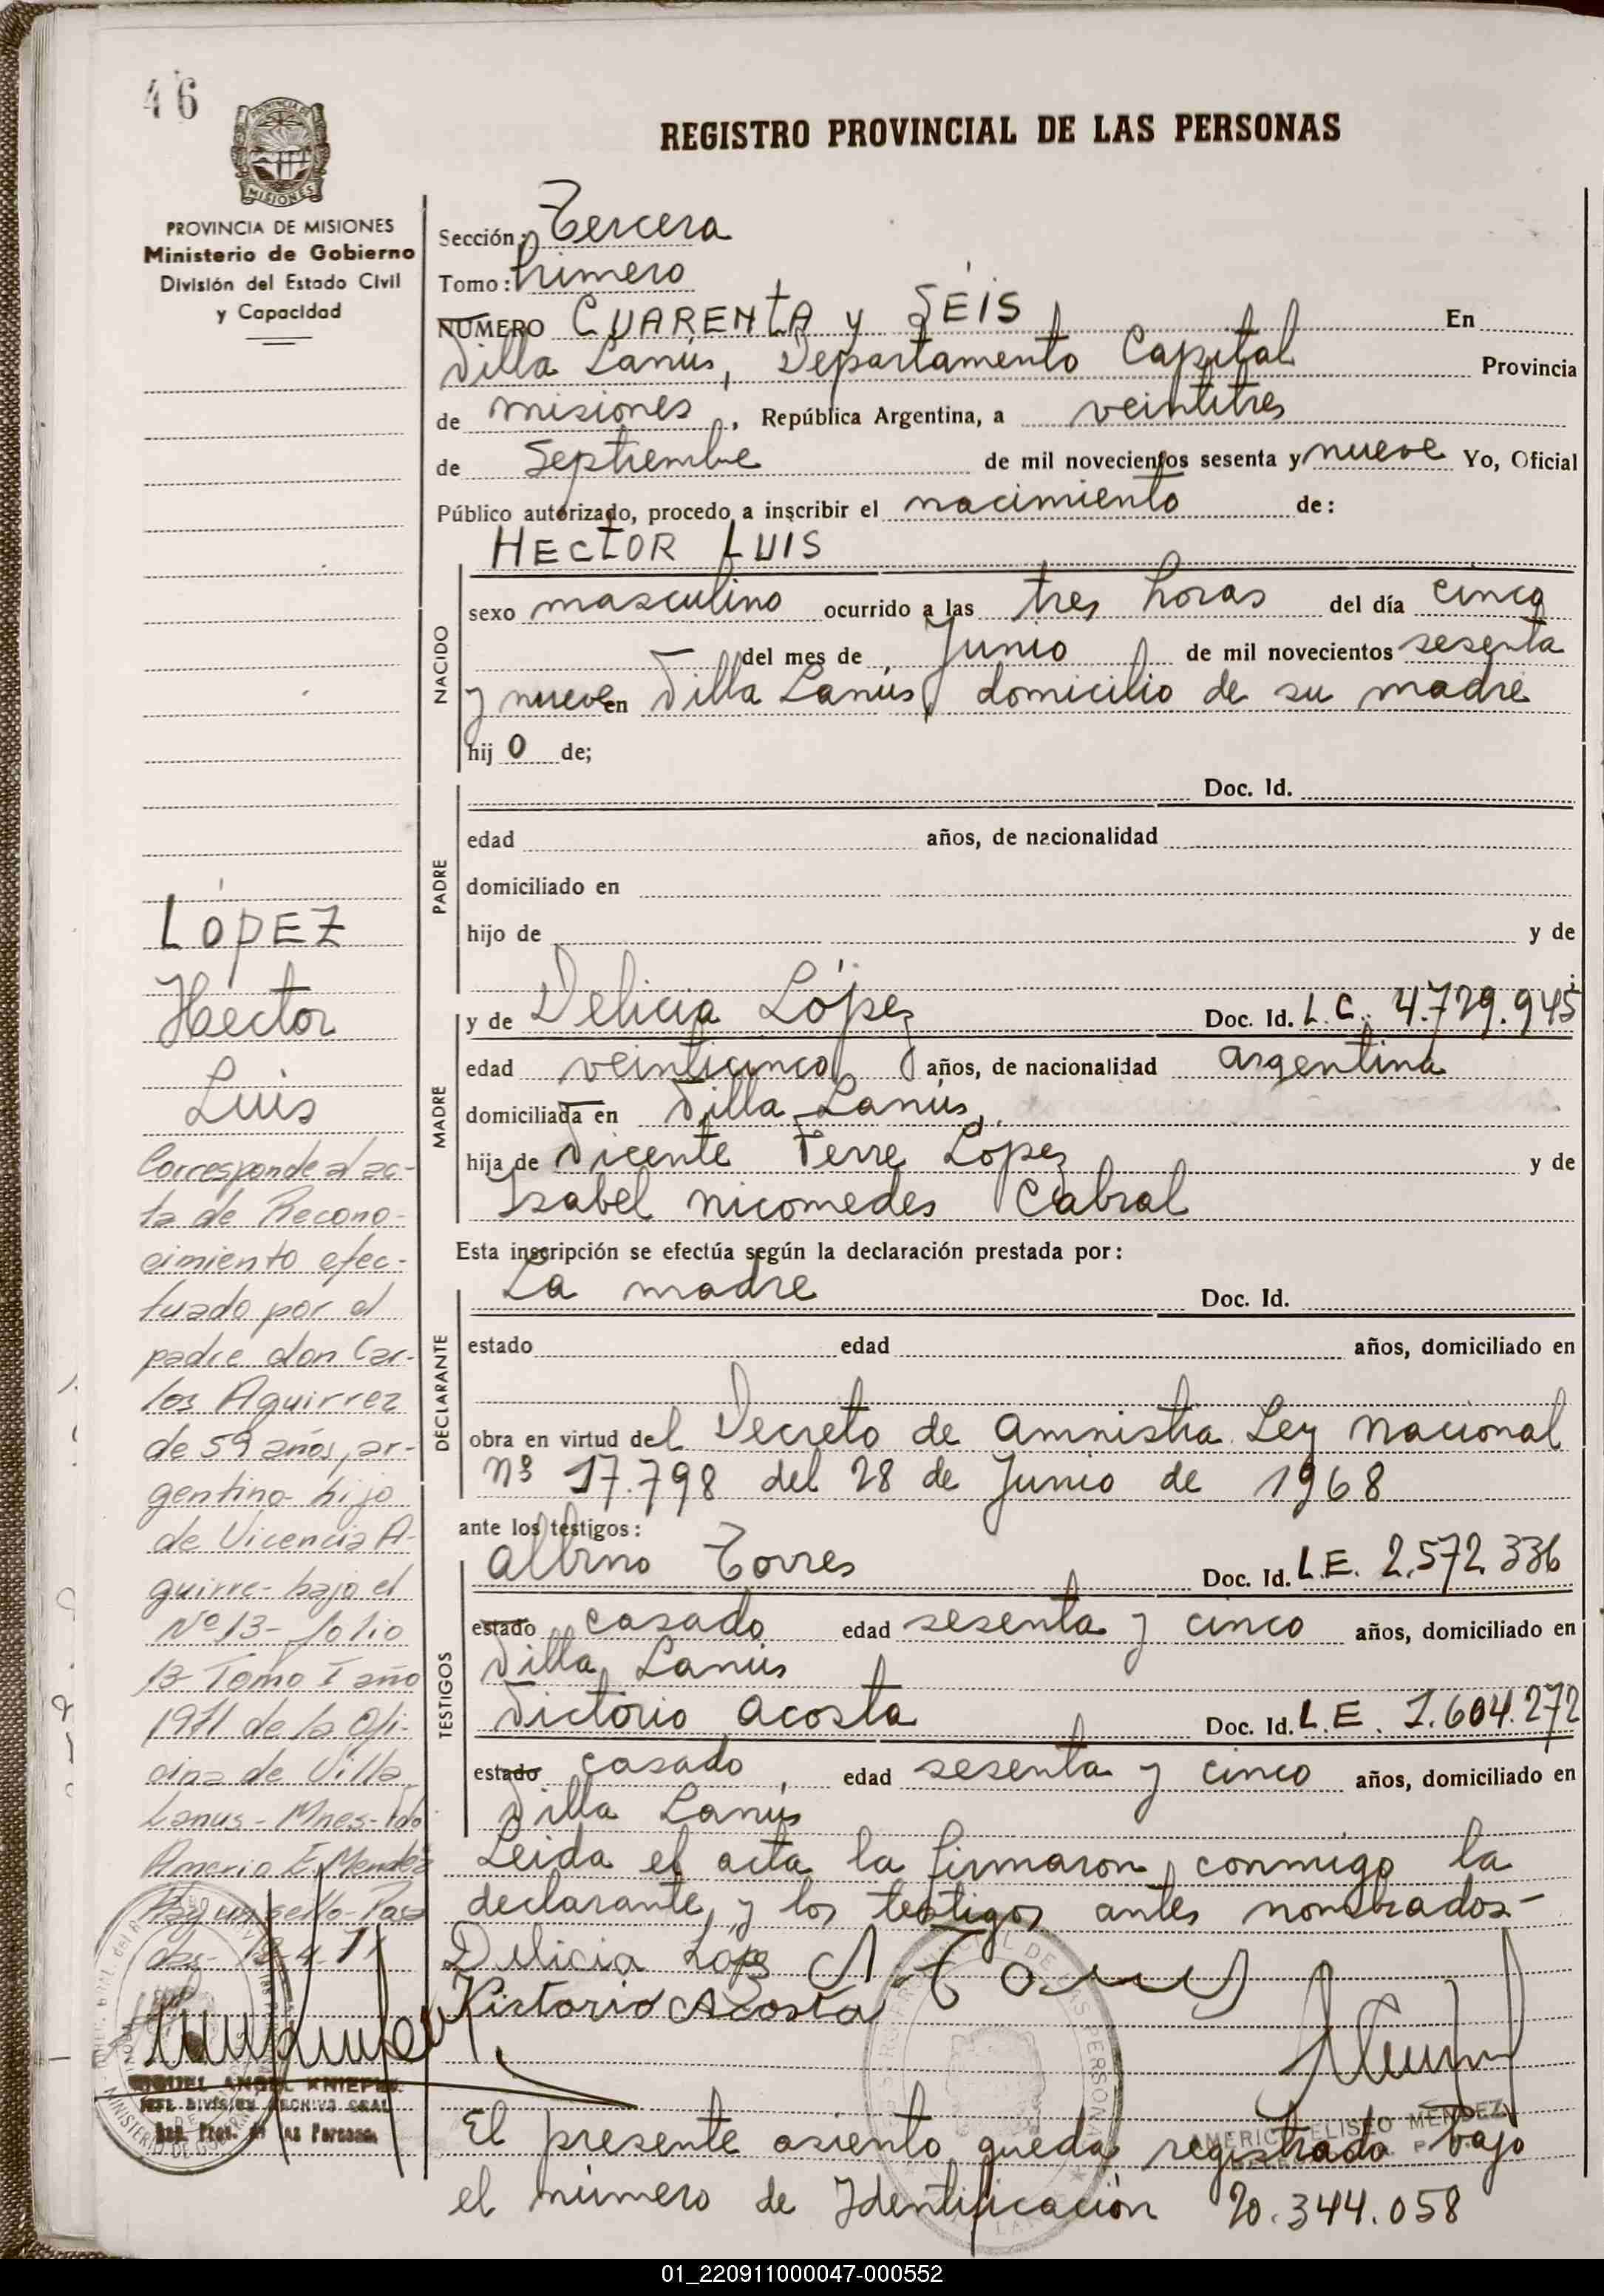 46
REGISTRO PROVINCIAL DE LAS PERSONAS
PROVINCIA DE MISIONES
Ministerio de Gobierno
División del Estado Civil
y Capacidad
Sección: Tercera
Tomo: Primero
NUMERO CUARENTA y SEIS En
Villa Lanús, Departamento Capital Provincia
de Misiones, República Argentina, a veintitres
de Septiembre de mil novecientos sesenta y nueve Yo, Oficial
Público autorizado, procedo a inscribir el nacimiento de:
HECTOR LUIS
NACIDO
sexo masculino ocurrido a las tres horas del día cinco
del mes de Junio de mil novecientos sesenta
y nueve en Villa Lanús, domicilio de su madre
hij o de;
PADRE
Doc. Id.
edad años, de nacionalidad
domiciliado en
hijo de y de
MADRE
y de Delicia López Doc. Id. L.C. 4.729.945
edad veinticinco años, de nacionalidad argentina
domiciliada en Villa Lanús,
hija de Vicente Ferre López y de
Isabel Nicomedes Cabral
Esta inscripción se efectúa según la declaración prestada por:
DECLARANTE
La madre Doc. Id.
estado edad años, domiciliado en
obra en virtud del Decreto de amnistia Ley Nacional
Nº 17.798 del 28 de Junio de 1968
ante los testigos:
TESTIGOS
Albino Torres Doc. Id. L.E. 2.572.336
estado casado edad sesenta y cinco años, domiciliado en
Villa Lanús
Victorio Acosta Doc. Id. L.E. 1.604.272
estado casado, edad sesenta y cinco años, domiciliado en
Villa Lanús
Leida el acta la firmaron conmigo la
declarante, y los testigos antes nombrados-
Delicia Lopez
Victorio Acosta
AMERICO ELISEO MENDEZ
El presente asiento queda registrado bajo
el número de Identificación 20.344.058
LÓPEZ
Hector
Luis
Corresponde al ac-
ta de Recono-
cimiento efec-
tuado por el
padre don Car-
los Aguirrez
de 59 años, ar-
gentino hijo
de Vicencia A-
guirre- bajo el
Nº 13- folio
13 Tomo I año
1971 de la Ofi-
cina de Villa
Lanus- Mnes- Fdo
Americo E. Mendez
Hay un sello- Posa
das-
MIGUEL ANGEL KNIEPER
JEFE DIVISION ARCHIVO GRAL
Reg. Prov. de las Personas
01_220911000047-000552